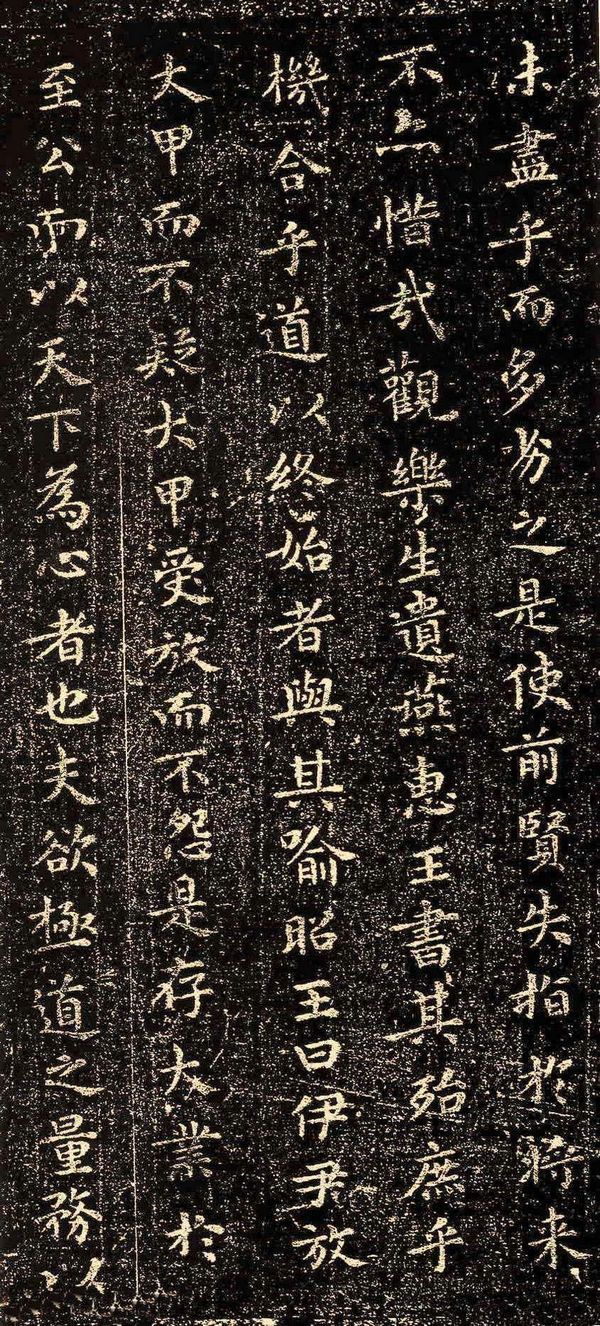 未盡乎而多劣之是使前賢失指於將来
不亦惜哉觀樂生遺燕惠王書其殆庶乎
機合乎道以終始者與其喻昭王曰伊尹放
大甲而不疑大甲受放而不怨是存大業於
至公而以天下為心者也夫欲極道之量務以